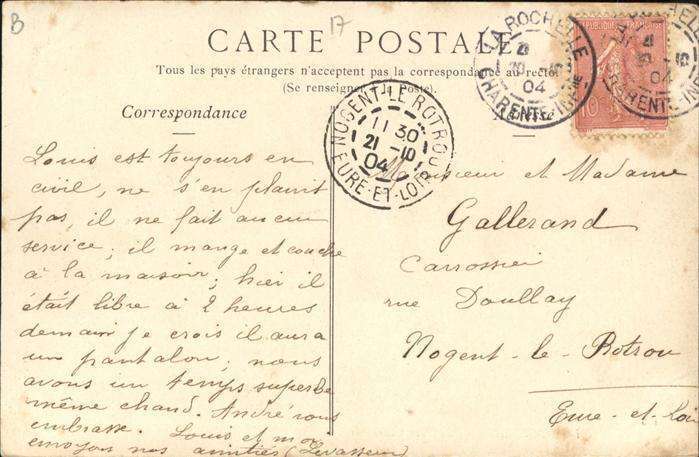 B
17
CARTE POSTALE
Tous les pays étrangers n'acceptent pas la correspondance au recto
(Se renseigner à la Poste).
Correspondance
LA ROCHELLE
04
CHARENTE-INRE
RÉPUBLIQUE FRANÇAISE
10
LA ROCHELLE
04
CHARENTE-INRE
NOGENT-LE ROTROU
11 30
21 -10
04
EURE-ET-LOIR
Louis est toujours en
civil, ne s'en plaint
pas, il ne fait aucun
service, il mange et couche
à la maison; hier il
était libre à 2 heures
demain je crois il aura
un pantalon; nous
avons un temps superbe
même chaud. André vous
embrasse. Louis et moi
envoyons nos amitiés (Levasseur)
Monsieur et Madame
Gallerand
Carrossier
rue Doullay
Nogent-le-Rotrou
Eure-et-Loir